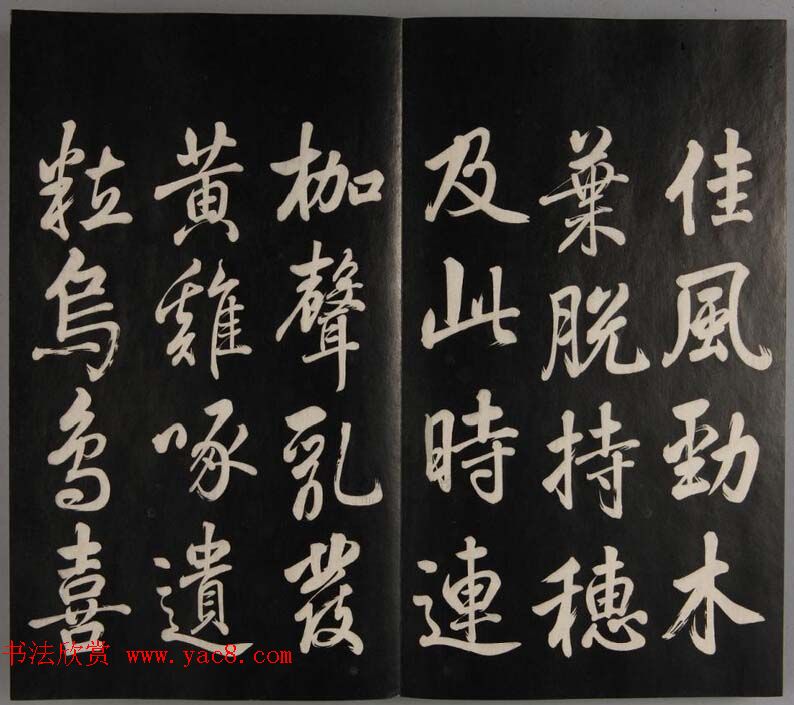 佳風勁木
葉脱持穗
及此時連
枷聲乱發
黄雞啄遺
粒烏鳥喜
书法欣赏 www.yac8.com